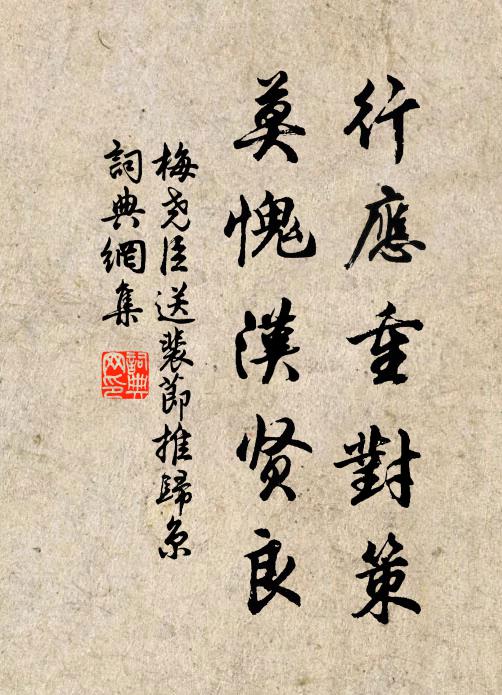 行應重對策
莫愧漢贤良
梅尧臣送裴節推歸京
詞典網集
詞典網印